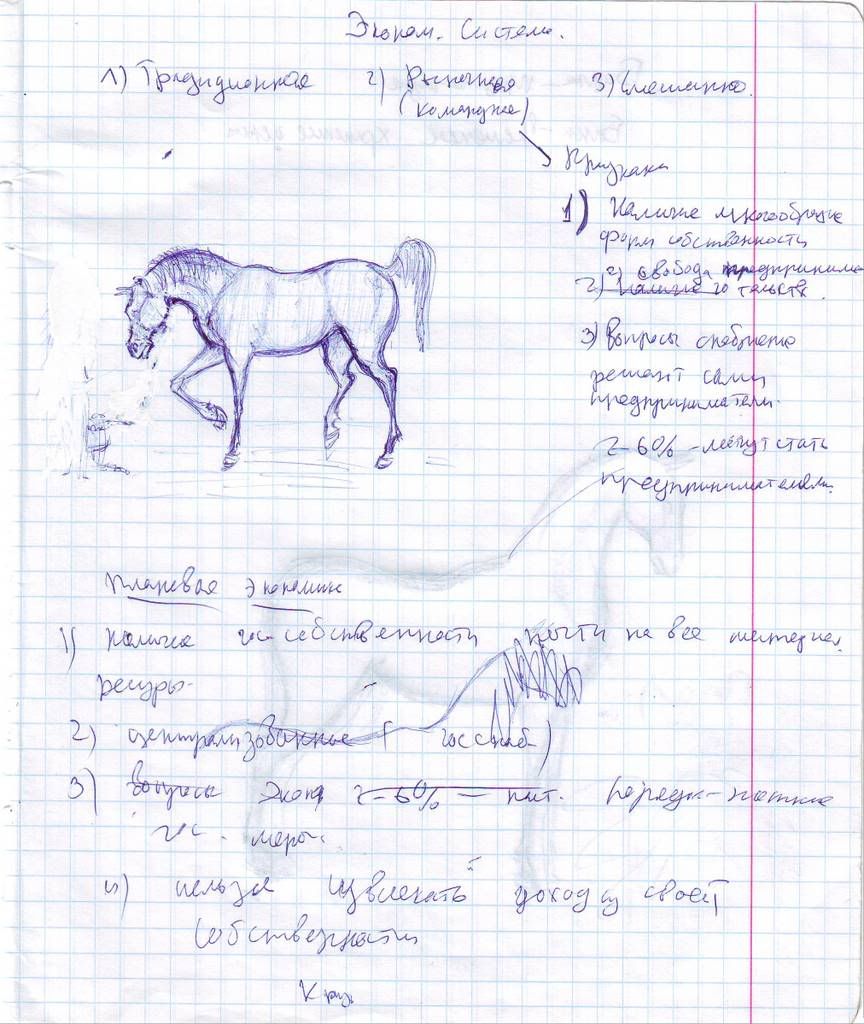 Эконом. Система.
1) Традиционная 2) Рыночная 3) Смешанно.
(командное)
Признаки
1) Наличие многообразие
форм собственности
2) свобода предпринима
2) наличие го тельств.
3) Вопросы
решают сами
предприниматели.
2-6% - могут стать
предпринимателями.
Плановая экономик
1) наличие гос собственности почти на все
ресурсы.
2) централизованное ( госснаб)
3) вопросы экон 2-6% - пит.
гос. меры.
4) нельзя извлекать доход из своей
собственности